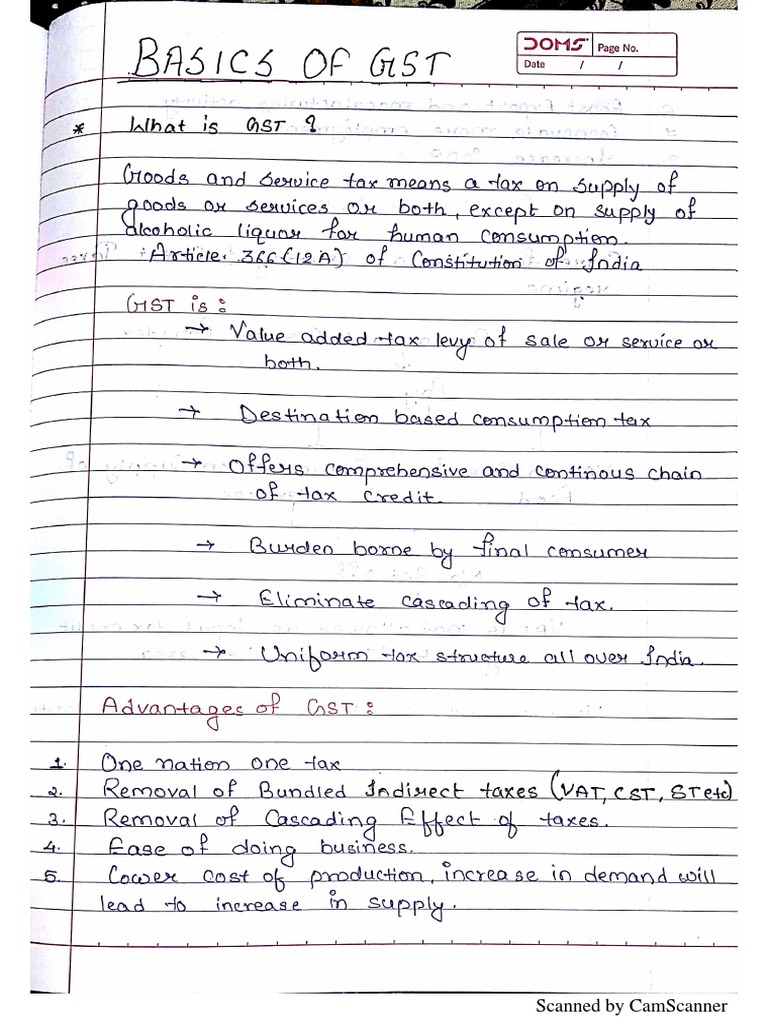 BASICS OF GST
DOMS Page No.
Date / /
* What is GST ?
Goods and service tax means a tax on supply of
goods or services or both, except on supply of
alcoholic liquor for human consumption.
:Article. 366(12A) of Constitution of India
GST is :
→ Value added tax levy of sale or service or
both.
→ Destination based consumption tax
→ Offers comprehensive and continous chain
of tax credit.
→ Burden borne by final consumer
→ Eliminate cascading of tax.
→ Uniform tax structure all over India.
Advantages of GST :
1. One nation one tax
2. Removal of Bundled Indirect taxes (VAT, CST, ST etc)
3. Removal of Cascading Effect of taxes.
4. Ease of doing business.
5. Lower cost of production, increase in demand will
lead to increase in supply.
Scanned by CamScanner